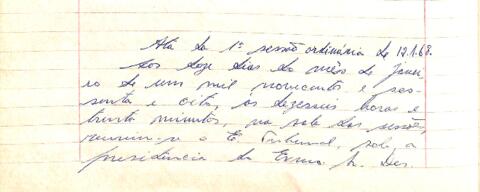 Ata da 1ª sessão ordinária de 12.1.68.
Aos doze dias do mês de janei
ro de um mil novecentos e ses-
senta e oito, às dezesseis horas e
trinta minutos, na sala das sessões,
reuniu-se o E. Tribunal, sob a
presidência do Exmo. Sr. Des.